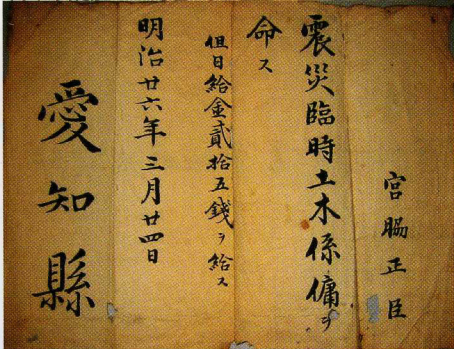 宮脇正臣
震災臨時土木係傭ヲ
命ス
但日給金貳拾五錢ヲ給ス
明治廿六年三月廿四日
愛知縣